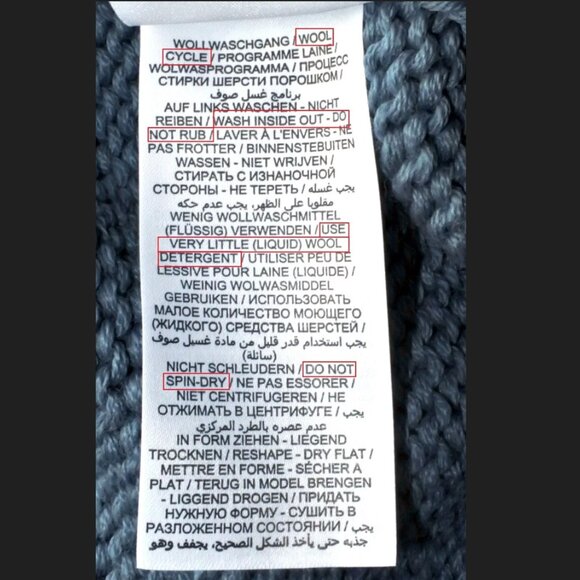 WOLLWASCHGANG / WOOL
CYCLE / PROGRAMME LAINE /
WOLWASPROGRAMMA / ПРОЦЕСС
СТИРКИ ШЕРСТИ ПОРОШКОМ /
برنامج غسل صوف
AUF LINKS WASCHEN - NICHT
REIBEN / WASH INSIDE OUT - DO
NOT RUB / LAVER À L'ENVERS - NE
PAS FROTTER / BINNENSTEBUITEN
WASSEN - NIET WRIJVEN /
СТИРАТЬ С ИЗНАНОЧНОЙ
СТОРОНЫ - НЕ ТЕРЕТЬ / يجب غسله
مقلوبا على الظهر، يجب عدم حكه
WENIG WOLLWASCHMITTEL
(FLÜSSIG) VERWENDEN / USE
VERY LITTLE (LIQUID) WOOL
DETERGENT / UTILISER PEU DE
LESSIVE POUR LAINE (LIQUIDE) /
WEINIG WOLWASMIDDEL
GEBRUIKEN / ИСПОЛЬЗОВАТЬ
МАЛОЕ КОЛИЧЕСТВО МОЮЩЕГО
(ЖИДКОГО) СРЕДСТВА ШЕРСТЕЙ /
يجب استخدام قدر قليل من مادة غسيل صوف
(سائلة)
NICHT SCHLEUDERN / DO NOT
SPIN-DRY / NE PAS ESSORER /
NIET CENTRIFUGEREN / НЕ
ОТЖИМАТЬ В ЦЕНТРИФУГЕ / يجب
عدم عصره بالطرد المركزي
IN FORM ZIEHEN - LIEGEND
TROCKNEN / RESHAPE - DRY FLAT /
METTRE EN FORME - SÉCHER A
PLAT / TERUG IN MODEL BRENGEN
- LIGGEND DROGEN / ПРИДАТЬ
НУЖНУЮ ФОРМУ - СУШИТЬ В
РАЗЛОЖЕННОМ СОСТОЯНИИ / يجب
جذبه حتى يأخذ الشكل الصحيح، يجفف وهو